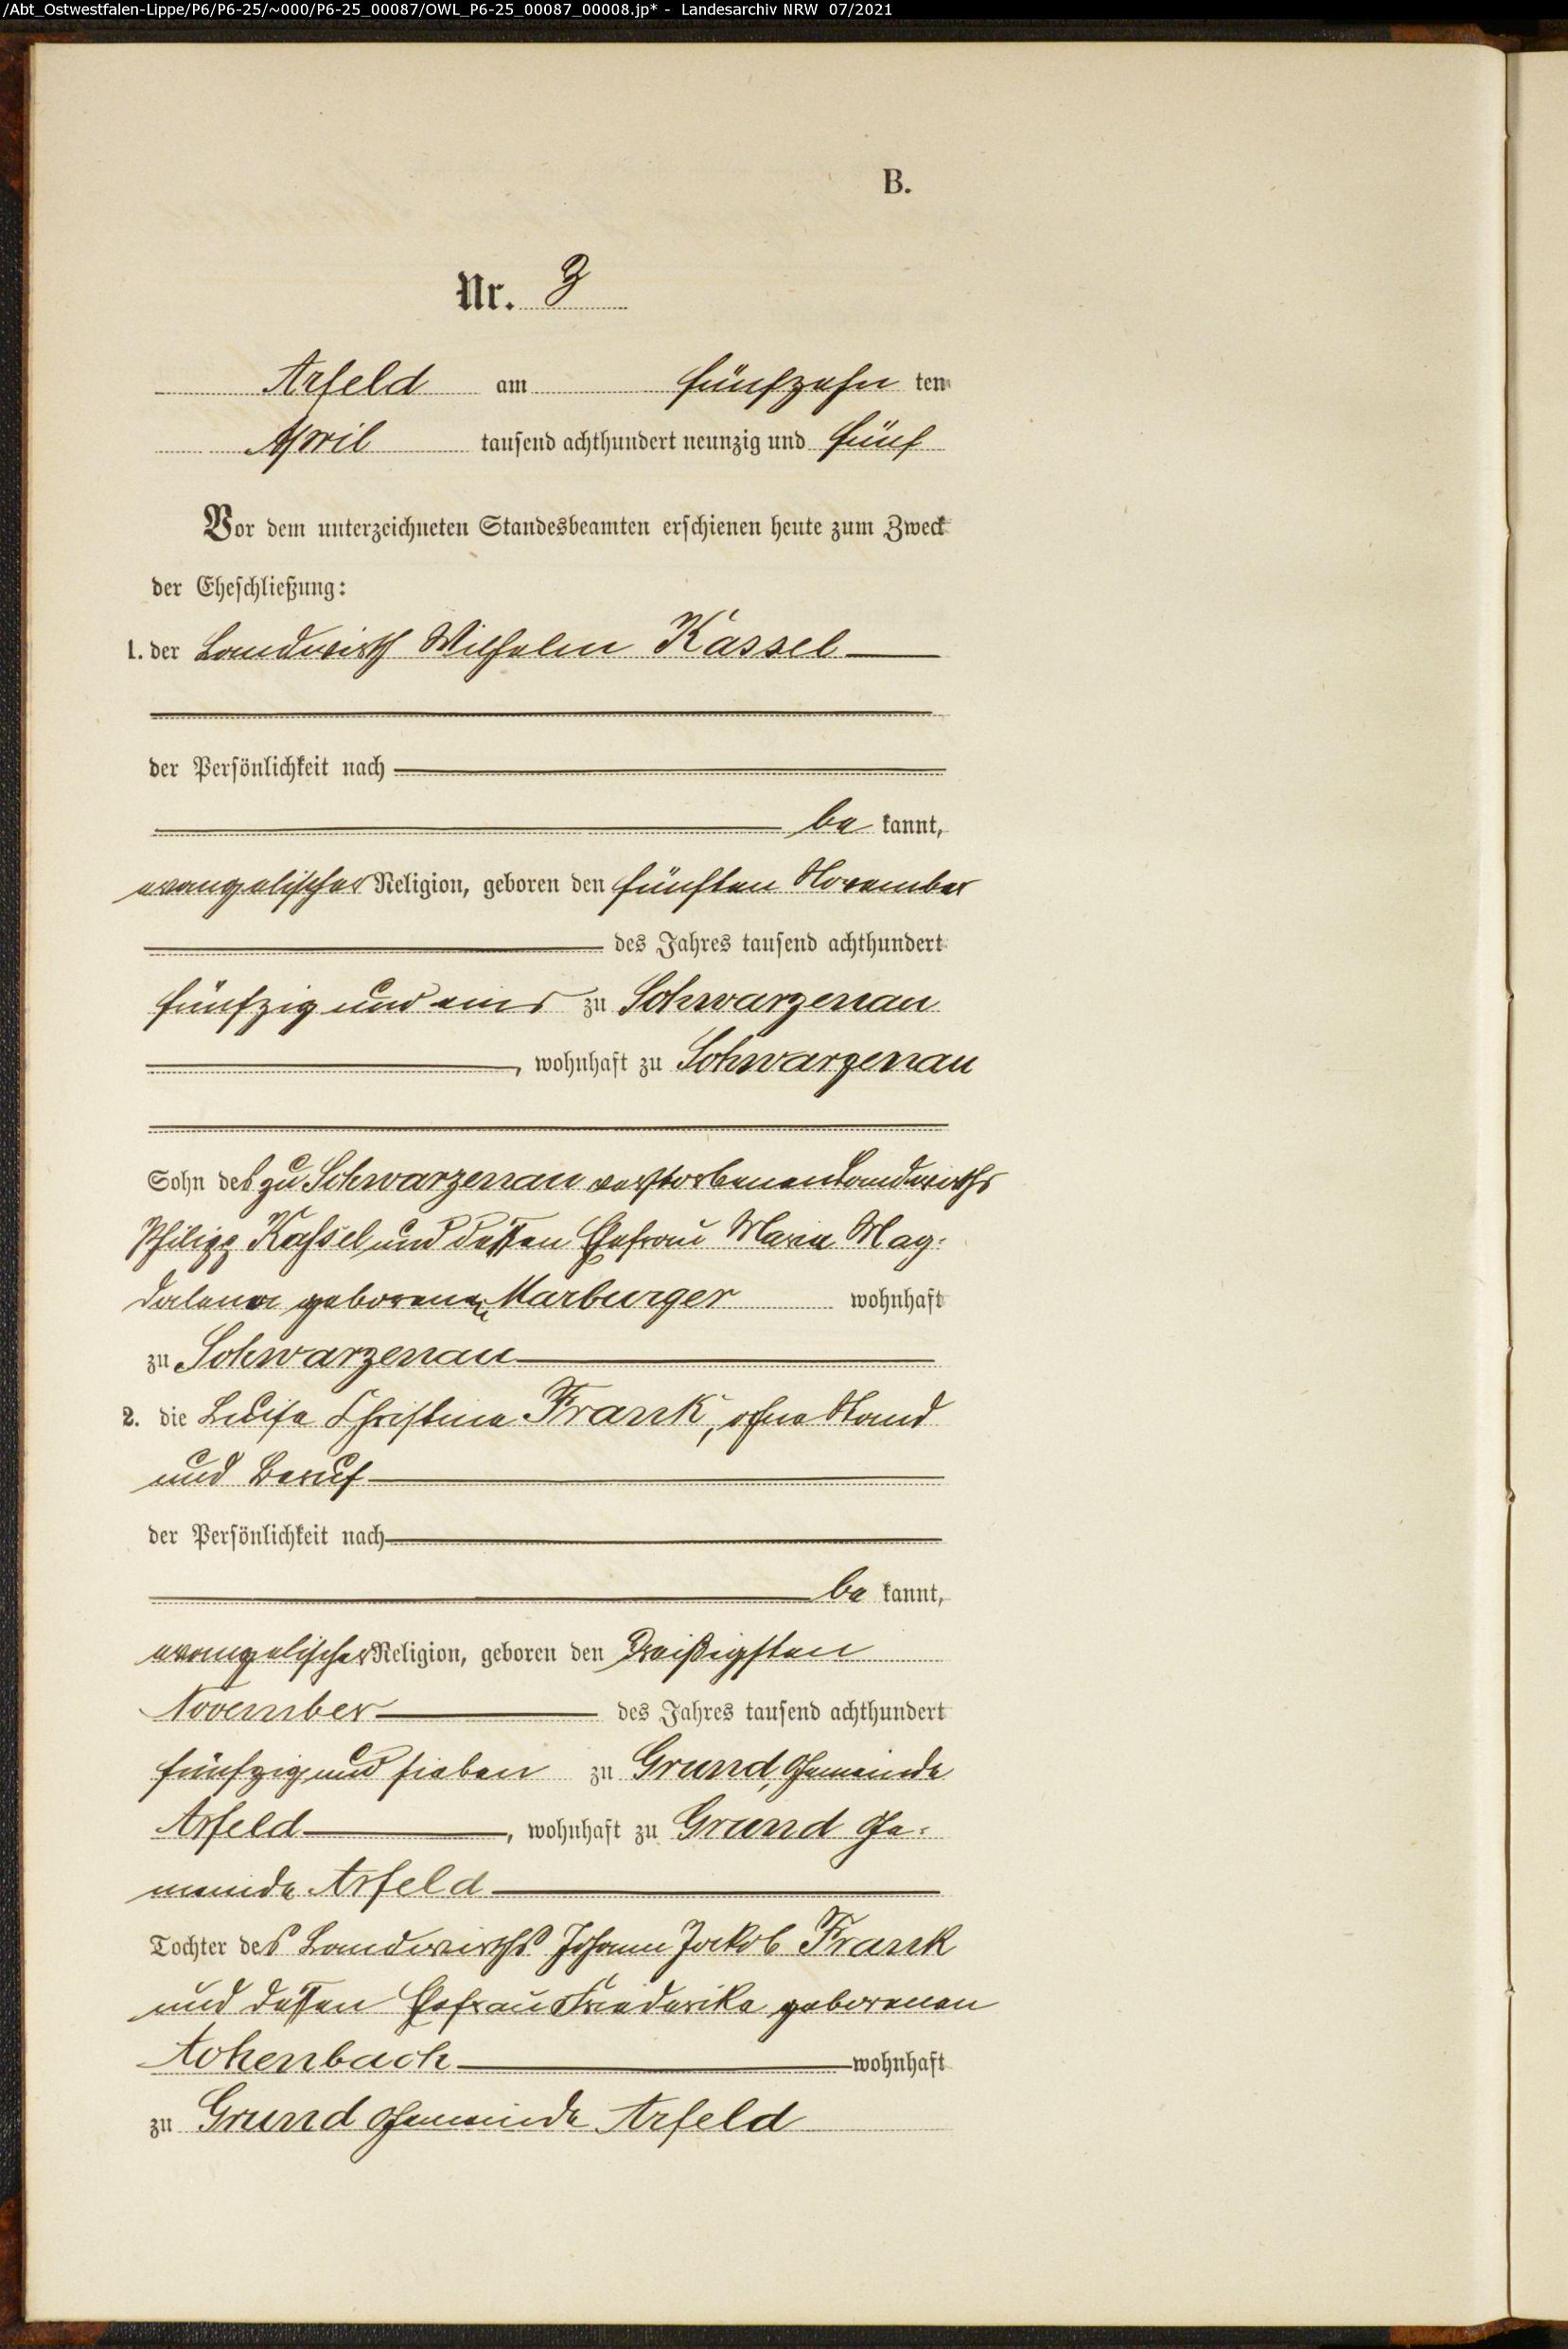 /Abt_Ostwestfalen-Lippe/P6/P6-25/~000/P6-25_00087/OWL_P6-25_00087_00008.jp* - Landesarchiv NRW 07/2021
B.
Nr. 3
Arfeld am fünfzehn ten
April tausend achthundert neunzig und fünf
Vor dem unterzeichneten Standesbeamten erschienen heute zum Zweck
der Eheschließung:
1. der Landwirth Wilhelm Kassel
der Persönlichkeit nach
be kannt,
evangelischer Religion, geboren den fünften November
des Jahres tausend achthundert
fünfzig und eins zu Schwarzenau
, wohnhaft zu Schwarzenau
Sohn des zu Schwarzenau verstorbenen Landwirths
Philipp Kassel und dessen Ehefrau Maria Mag-
dalena geborenen Marburger wohnhaft
zu Schwarzenau
2. die Luise Christine Frank, ohne Stand
und Beruf
der Persönlichkeit nach
be kannt,
evangelischer Religion, geboren den dreißigsten
November des Jahres tausend achthundert
fünfzig und sieben zu Grund, Gemeinde
Arfeld, wohnhaft zu Grund Ge-
meinde Arfeld
Tochter des Landwirths Johann Jakob Frank
und dessen Ehefrau Friederike geborenen
Achenbach wohnhaft
zu Grund Gemeinde Arfeld